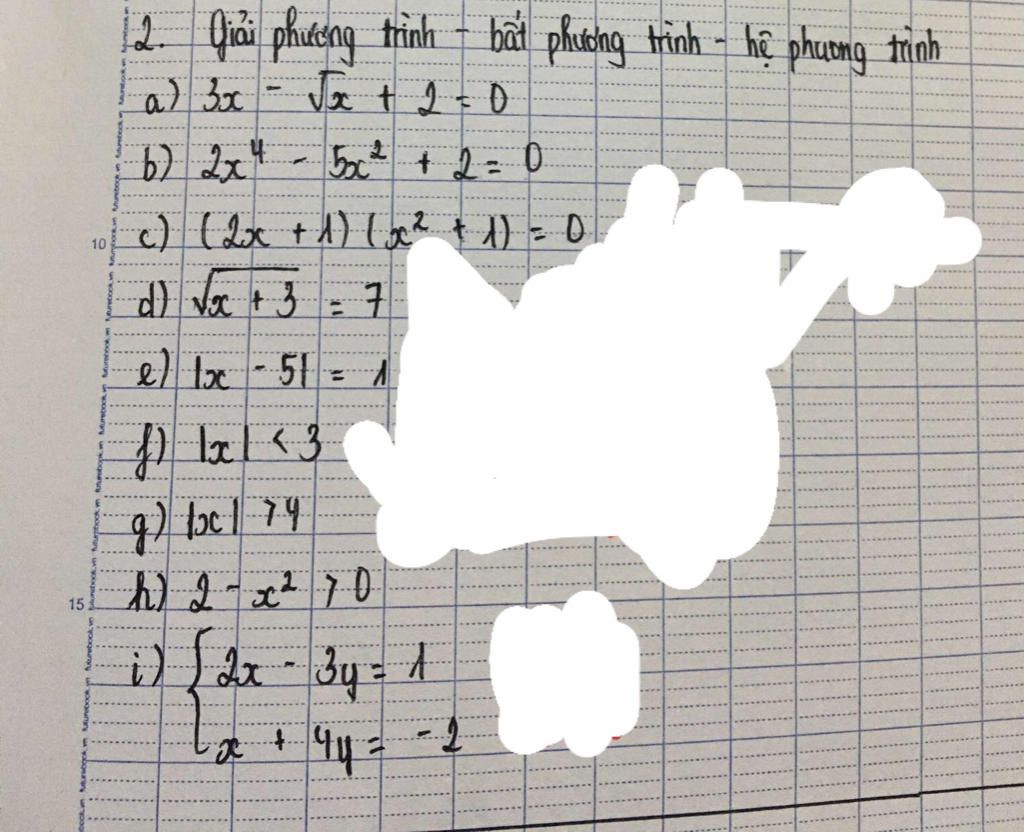 2. Giải phương trình - bất phương trình - hệ phương trình
a) 3x - √x + 2 = 0
b) 2x⁴ - 5x² + 2 = 0
10 c) (2x + 1)(x² + 1) = 0
d) √(x + 3) = 7
e) |x - 5| = 1
f) |x| < 3
g) |x| > 4
15 h) 2 - x² > 0
i) { 2x - 3y = 1
x + 4y = -2